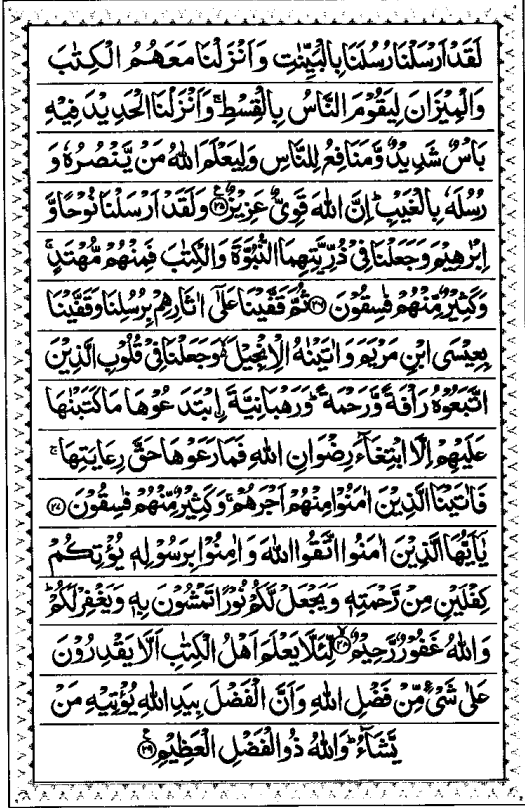 لَقَدۡ اَرۡسَلۡنَا رُسُلَنَا بِالۡبَيِّنٰتِ وَاَنۡزَلۡنَا مَعَهُمُ الۡكِتٰبَ
وَالۡمِيۡزَانَ لِيَقُوۡمَ النَّاسُ بِالۡقِسۡطِ‌ۚ وَاَنۡزَلۡنَا الۡحَدِيۡدَ فِيۡهِ
بَاۡسٌ شَدِيۡدٌ وَّمَنَافِعُ لِلنَّاسِ وَلِيَـعۡلَمَ اللّٰهُ مَنۡ يَّنۡصُرُهٗ وَ
رُسُلَهٗ بِالۡغَيۡبِ‌ؕ اِنَّ اللّٰهَ قَوِىٌّ عَزِيۡزٌ ﴿۲۵﴾ وَلَقَدۡ اَرۡسَلۡنَا نُوۡحًا وَّ
اِبۡرٰهِيۡمَ وَجَعَلۡنَا فِىۡ ذُرِّيَّتِهِمَا النُّبُوَّةَ وَالۡكِتٰبَ‌ فَمِنۡهُمۡ مُّهۡتَدٍ‌ۚ
وَكَثِيۡرٌ مِّنۡهُمۡ فٰسِقُوۡنَ ﴿۲۶﴾ ثُمَّ قَفَّيۡنَا عَلٰٓى اٰثَارِهِمۡ بِرُسُلِنَا وَقَفَّيۡنَا
بِعِيۡسَى ابۡنِ مَرۡيَمَ وَاٰتَيۡنٰهُ الۡاِنۡجِيۡلَ ۙ وَجَعَلۡنَا فِىۡ قُلُوۡبِ الَّذِيۡنَ
اتَّبَعُوۡهُ رَاۡفَةً وَّرَحۡمَةً  ؕ وَرَهۡبَانِيَّةَ ۨابۡتَدَعُوۡهَا مَا كَتَبۡنٰهَا
عَلَيۡهِمۡ اِلَّا ابۡتِغَآءَ رِضۡوَانِ اللّٰهِ فَمَا رَعَوۡهَا حَقَّ رِعَايَتِهَا‌ ۚ
فَاٰتَيۡنَا الَّذِيۡنَ اٰمَنُوۡا مِنۡهُمۡ اَجۡرَهُمۡ‌ۚ وَكَثِيۡرٌ مِّنۡهُمۡ فٰسِقُوۡنَ ﴿۲۷﴾
يٰۤاَيُّهَا الَّذِيۡنَ اٰمَنُوا اتَّقُوا اللّٰهَ وَاٰمِنُوۡا بِرَسُوۡلِهٖ يُؤۡتِكُمۡ
كِفۡلَيۡنِ مِنۡ رَّحۡمَتِهٖ وَيَجۡعَلْ لَّكُمۡ نُوۡرًا تَمۡشُوۡنَ بِهٖ وَيَغۡفِرۡ لَكُمۡ‌ؕ
وَاللّٰهُ غَفُوۡرٌ رَّحِيۡمٌ ۙ ﴿۲۸﴾ لِّئَلَّا يَعۡلَمَ اَهۡلُ الۡكِتٰبِ اَلَّا يَقۡدِرُوۡنَ
عَلٰى شَىۡءٍ مِّنۡ فَضۡلِ اللّٰهِ‌ وَاَنَّ الۡفَضۡلَ بِيَدِ اللّٰهِ يُؤۡتِيۡهِ مَنۡ
يَّشَآءُ‌ؕ وَاللّٰهُ ذُو الۡفَضۡلِ الۡعَظِيۡمِ ﴿۲۹﴾